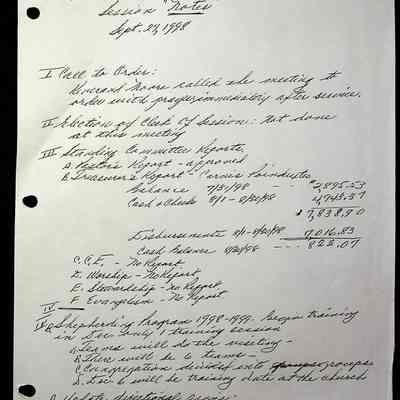 Session "Notes
Sept. 27, 1998
I Call to Order:
Reverend Moore called the meeting to
order with prayer immediately after service.
II Election of Clerk of Session: Not done
at this meeting
III Standing Committee Reports,
A. Pastor's Report - approved
B. Treasurer's Report - Cornice Poindexter
balance 7/31/98 - - $2,895.53
Cash & Checks 8/1 - 8/30/98 4,943.37
$7,838.90
Disbursements 8/1 - 8/30/98 7,016.83
Cash balance 8/30/98 - - - 822.07
C. C.E. - No Report
D. Worship - No Report
E. Stewardship - No Report
F. Evangelism - No Report
IV
Shepherding Program 1998-1999. Begin training
in Dec. only 1 training session
A. Teams will do the meeting -
B. There will be 6 teams -
C. Congregation divided into groups
D. Dec 6 will be training date at the church